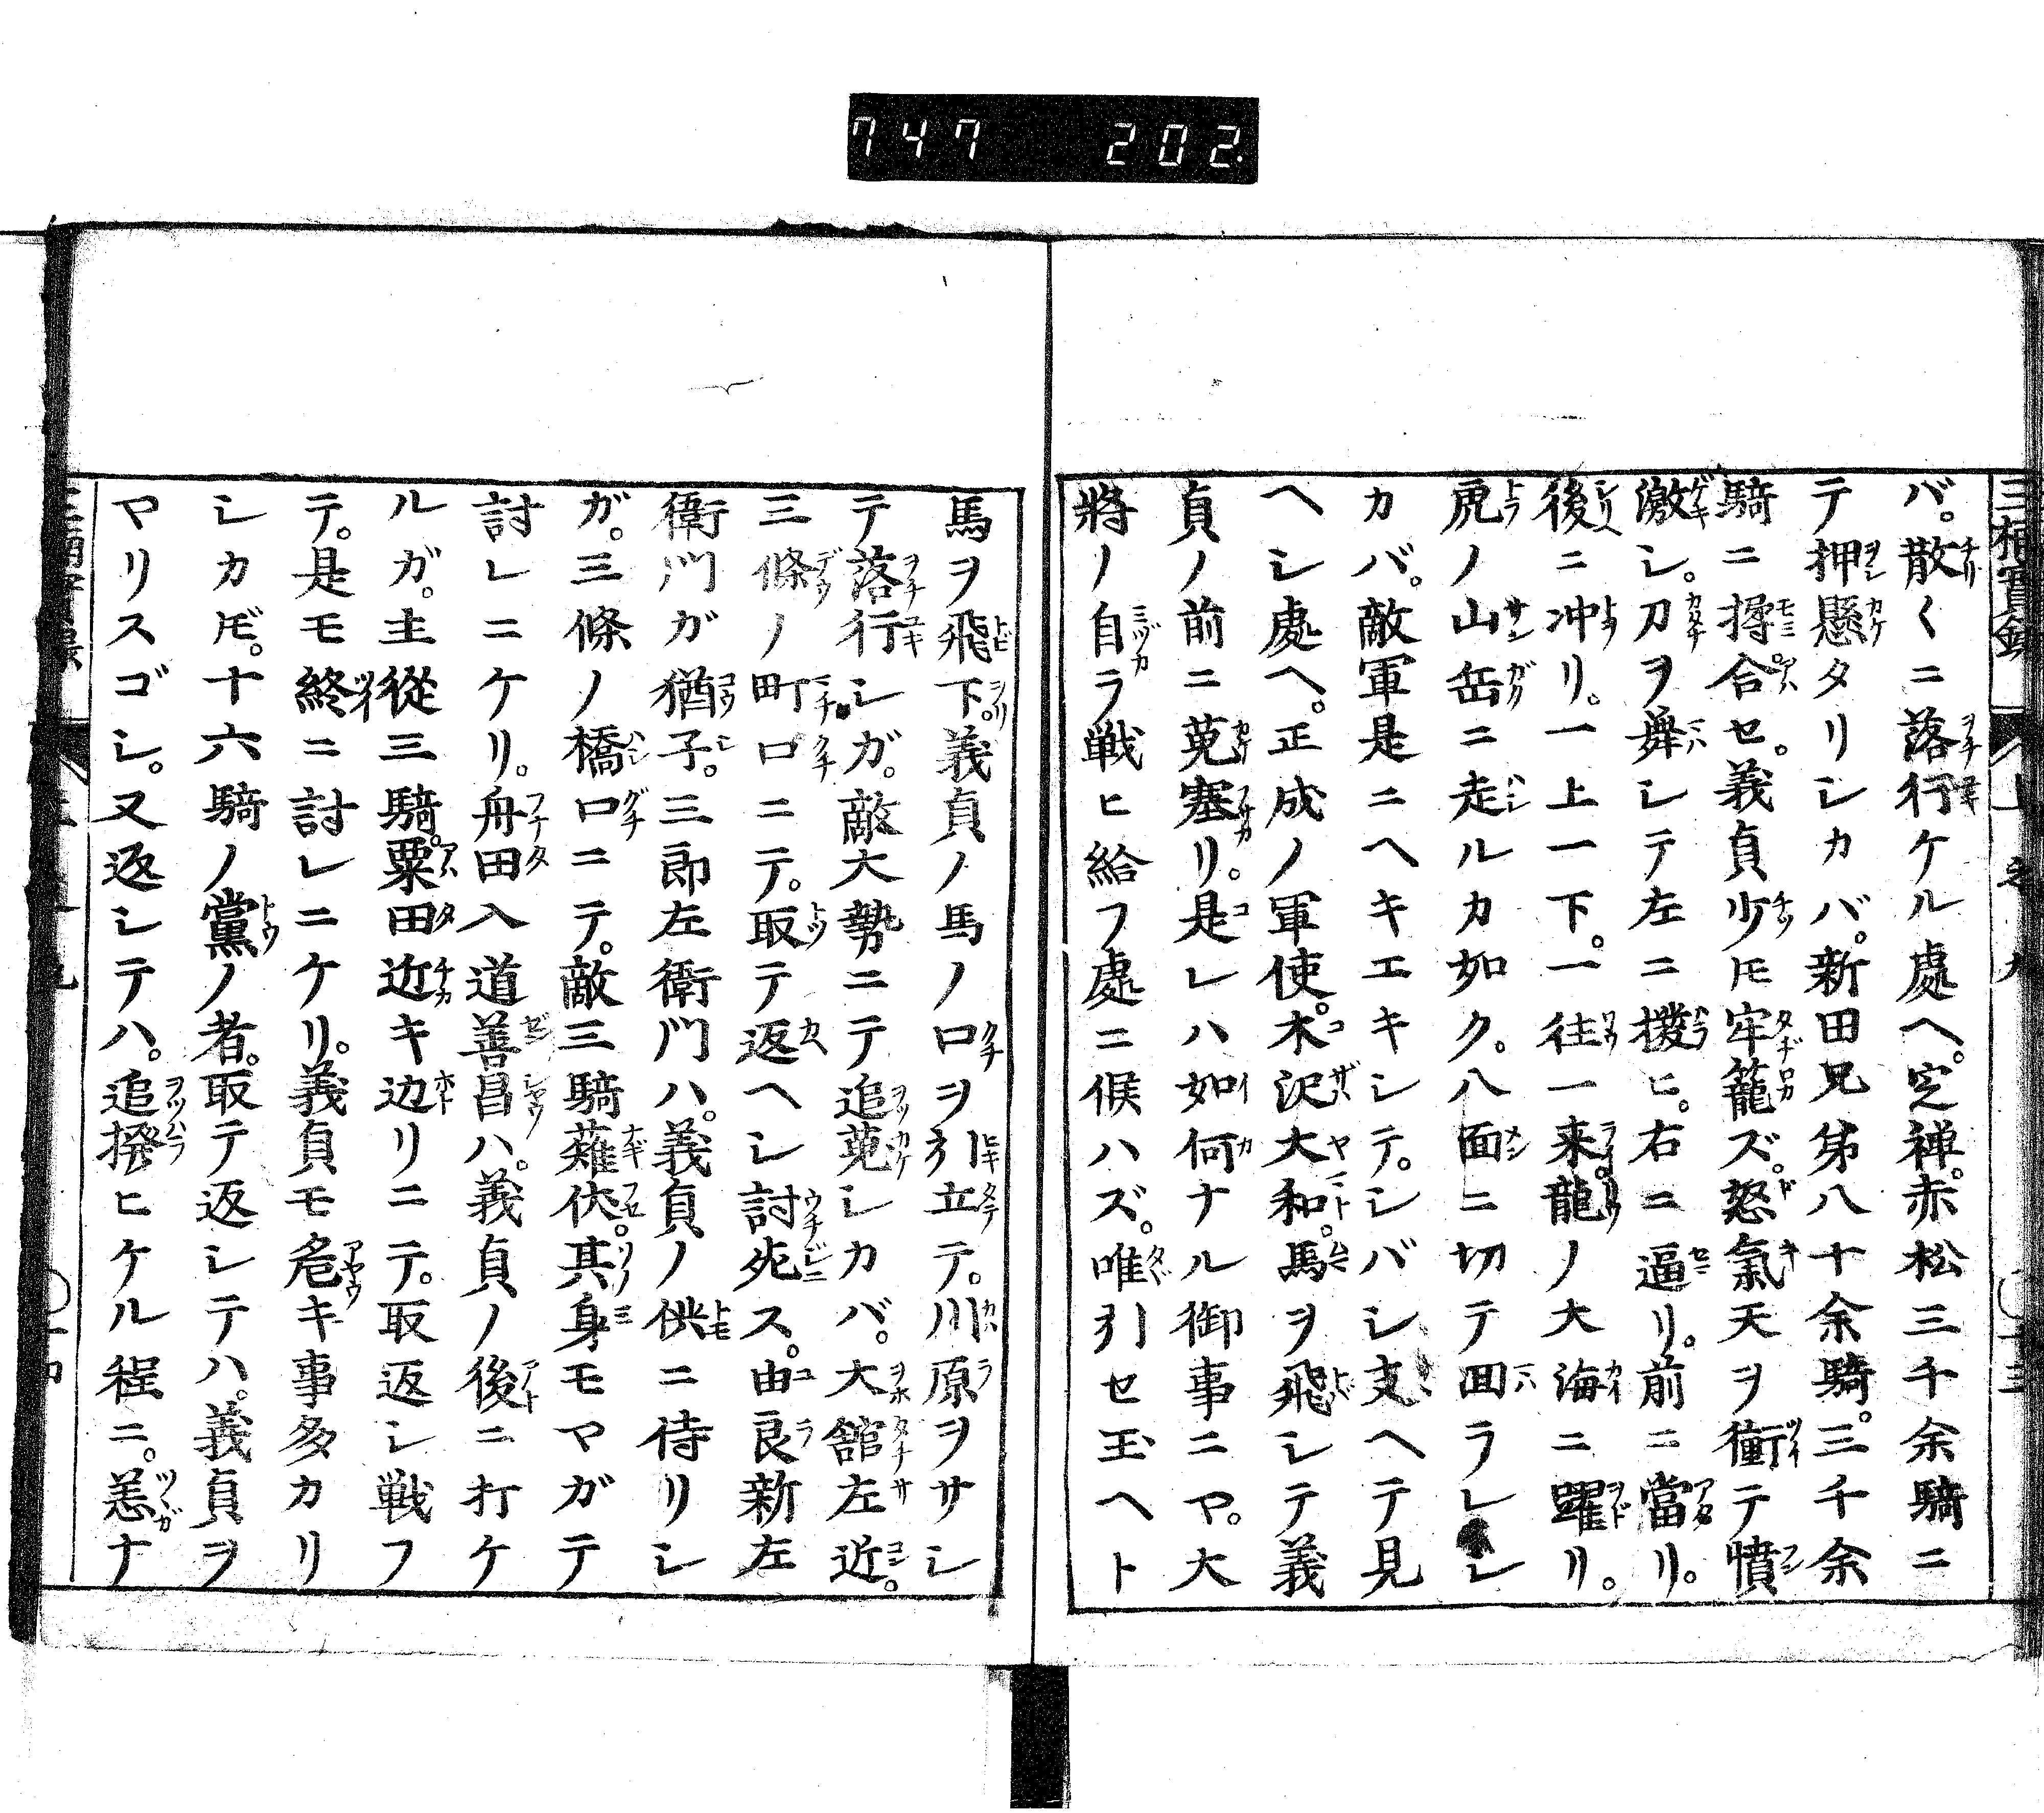 747 202.
バ。散〱ニ落行ケル處ヘ。定禅。赤松三千余騎ニ
テ押懸タリシカバ。新田兄弟八十余騎。三千余
騎ニ挊合セ。義貞少𪜈牢籠ズ。怒氣天ヲ衝テ憤
激シ。刀ヲ舞シテ左ニ撥ヒ。右ニ逼リ。前ニ當リ。
後ニ冲リ。一上一下。一往一来。龍ノ大海ニ躍リ。
虎ノ山岳ニ走ルカ如ク。八面ニ切テ回ラレシ
カバ。敵軍是ニヘキエキシテ。シバシ支ヘテ見
ヘシ處ヘ。正成ノ軍使。木沢大和。馬ヲ飛シテ義
貞ノ前ニ蒐塞リ。是レハ如何ナル御事ニヤ。大
將ノ自ラ戦ヒ給フ處ニ候ハズ。唯引セ玉ヘト
馬ヲ飛下。義貞ノ馬ノ口ヲ引立テ。川原ヲサシ
テ落行シガ。敵大勢ニテ追蒐シカバ。大舘左近。
三條ノ町口ニテ。取テ返ヘシ討死ス。由良新左
衛門ガ猶子。三郎左衛門ハ。義貞ノ供ニ侍リシ
ガ。三條ノ橋口ニテ。敵三騎薙伏。其身モマガテ
討レニケリ。舟田入道善昌ハ。義貞ノ後ニ打ケ
ルガ。主從三騎。粟田近キ辺リニテ。取返シ戦フ
テ。是モ終ニ討レニケリ。義貞モ危キ事多カリ
シカ𪜈。十六騎ノ黨ノ者。取テ返シテハ。義貞ヲ
マリスゴシ。又返シテハ。追撥ヒケル程ニ。恙ナ